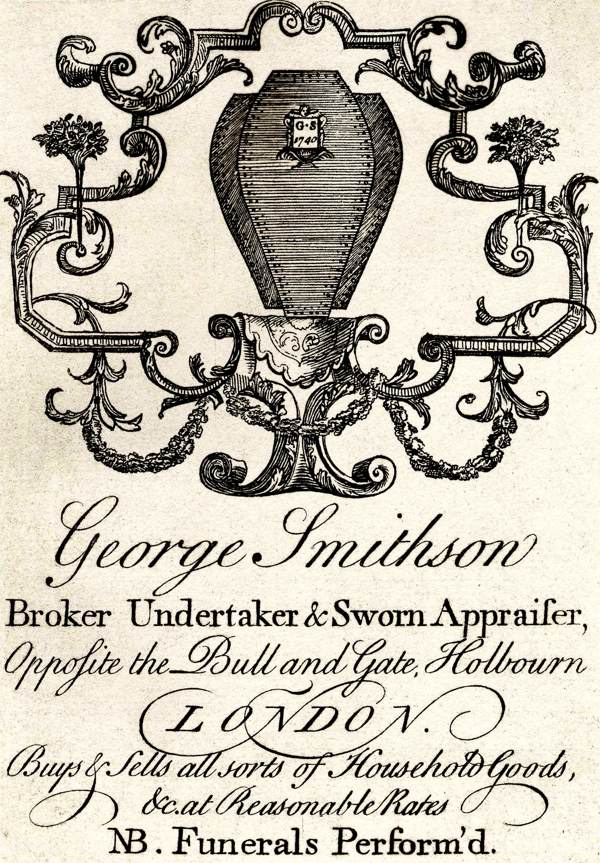 G·S
1740
George Smithson
Broker Undertaker & Sworn Appraiſer,
Oppoſite the Bull and Gate, Holbourn
LONDON.
Buys & Sells all sorts of Household Goods,
&c. at Reasonable Rates
NB. Funerals Perform'd.